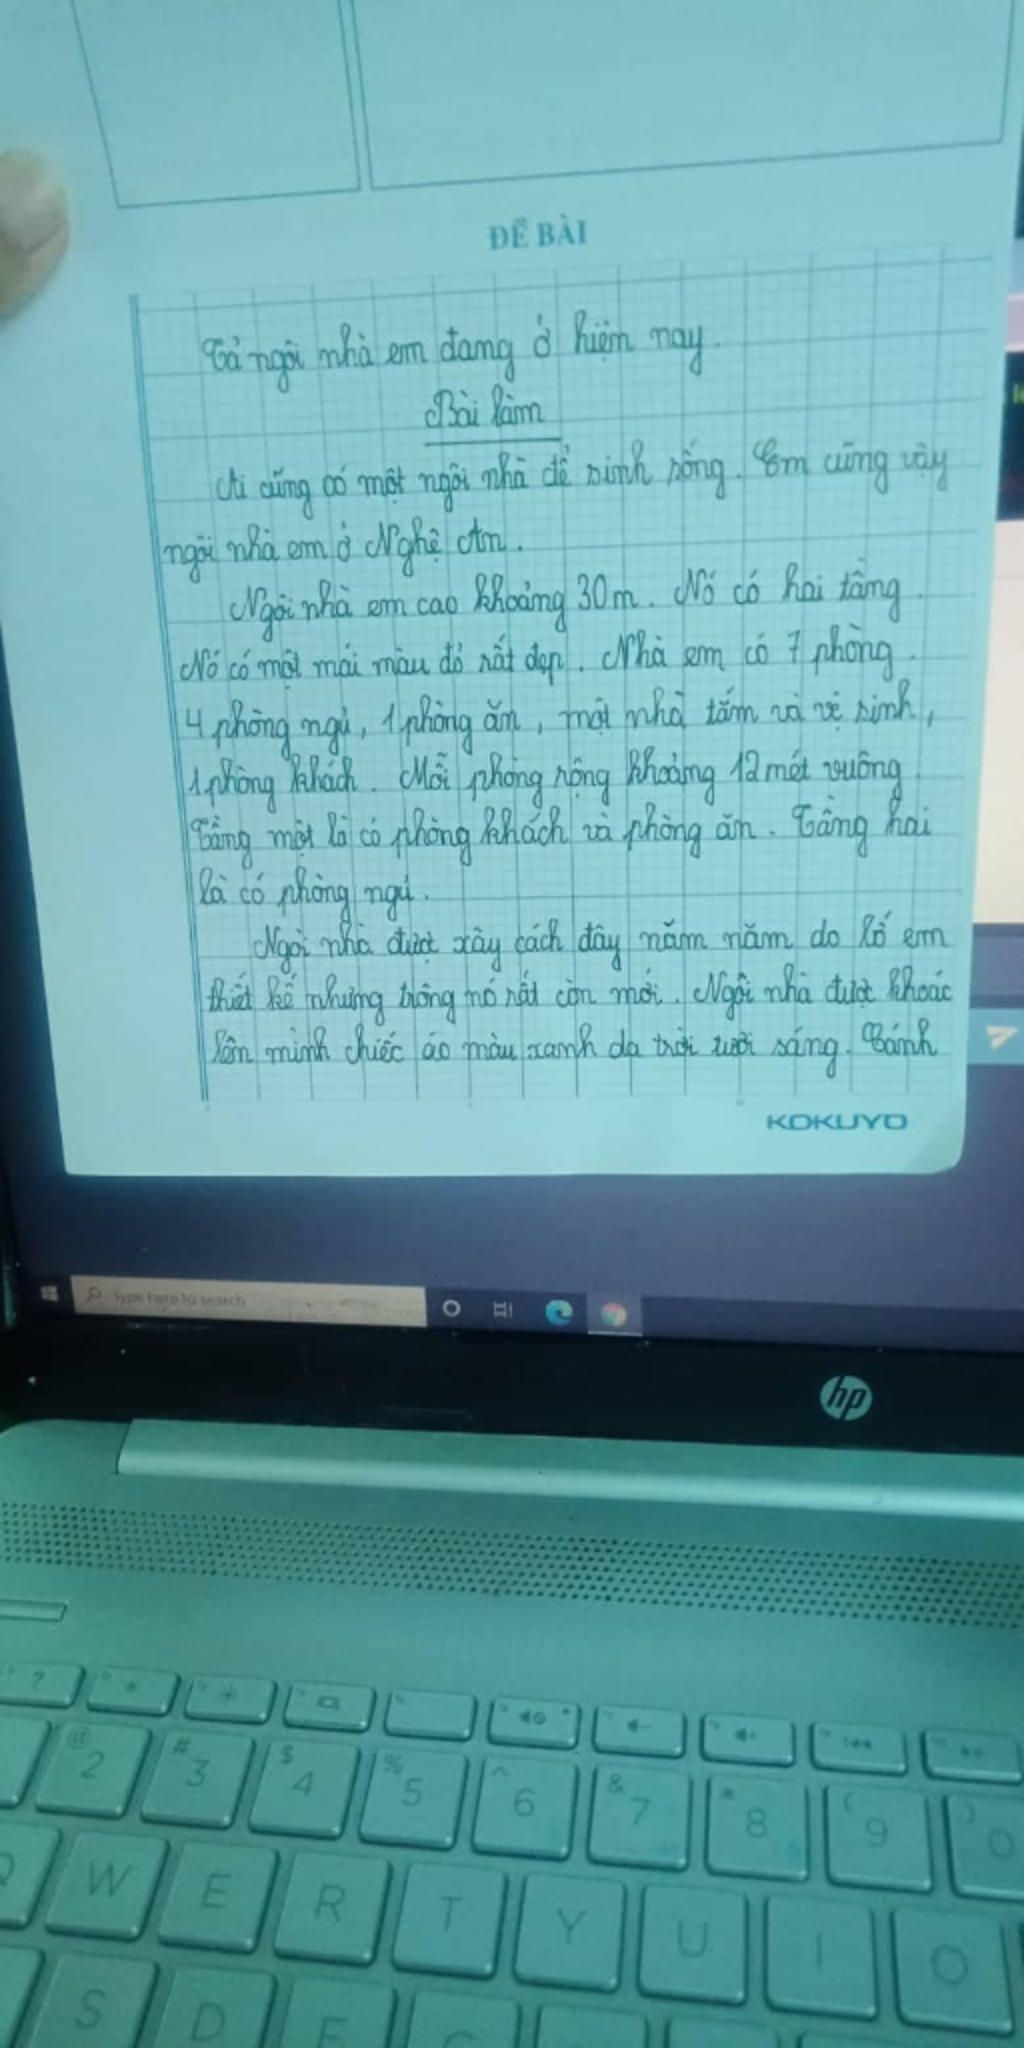 ĐỀ BÀI
Tả ngôi nhà em đang ở hiện nay.
Bài làm
Ai cũng có một ngôi nhà để sinh sống. Em cũng vậy
ngôi nhà em ở Nghệ An.
Ngôi nhà em cao khoảng 30m. Nó có hai tầng.
Nó có một mái màu đỏ rất đẹp. Nhà em có 7 phòng.
4 phòng ngủ, 1 phòng ăn, một nhà tắm và vệ sinh,
1 phòng khách. Mỗi phòng rộng khoảng 12 mét vuông
Tầng một là có phòng khách và phòng ăn. Tầng hai
là có phòng ngủ.
Ngôi nhà được xây cách đây năm năm do bố em
thiết kế nhưng trông nó rất còn mới. Ngôi nhà được khoác
lên mình chiếc áo màu xanh da trời tươi sáng. Cánh
KOKUYO
Type here to search
hp
?
@ 2 # 3 $ 4 % 5 ^ 6 & 7 * 8 ( 9 ) 0
W E R T Y U I O
S D F